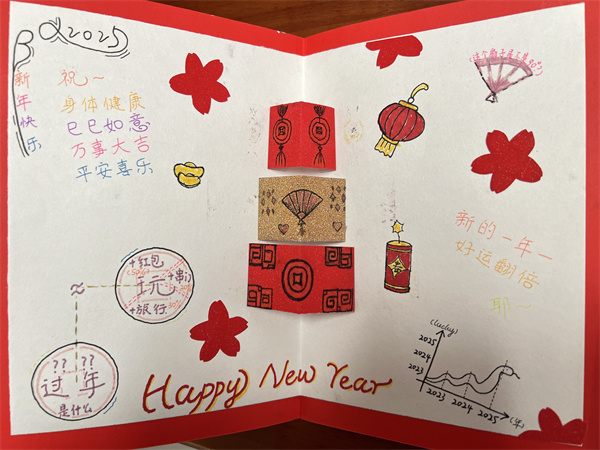 2025
新年快乐
祝~
身体健康
巳巳如意
万事大吉
平安喜乐
+红包
+串门
+旅行
≈
?? ??
过年
是什么
Happy New Year
新的一年一
好运翻倍
耶~
(lucky)
2025
2024
2023
2023 2024 2025 (年)